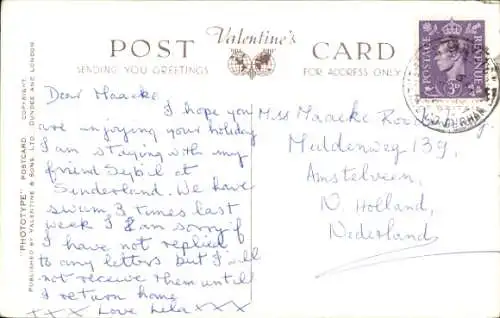 POST Valentine's CARD
SENDING YOU GREETINGS
FOR ADDRESS ONLY
POSTAGE REVENUE
3D
DURHAM
"PHOTOTYPE" POSTCARD. COPYRIGHT.
PUBLISHED BY VALENTINE & SONS. LTD. DUNDEE AND LONDON
Dear Maaeke
I hope you
are enjoying your holiday
I am staying with my
friend Sybil at
Sunderland. We have
swum 3 times last
week I am sorry if
I have not replied
to any letters but I will
not receive them until
I return home
XXX Love Lela XXX
Miss Maaeke
Muldenweg 139,
Amstelveen,
N. Holland,
Nederland